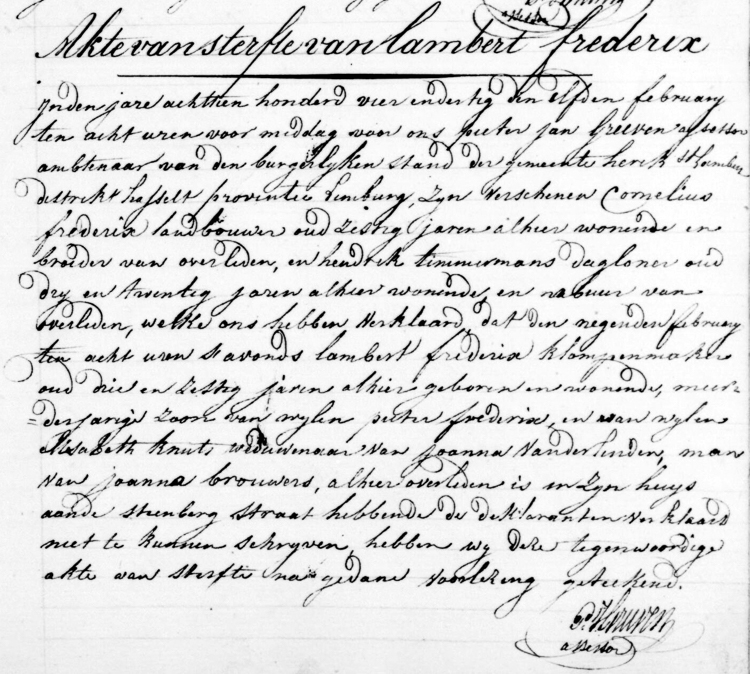 assessor
Akte van sterfte van lambert frederix
ijnden jare achthien honderd vier endertig den elfden february
ten acht uren voor middag voor ons pieter jan Greeven assessor
ambtenaar van den burgerlyken stand der gemeente herck St lambert
distrikt hasselt provintie limburg, Zyn verschenen Cornelius
frederix landbouwer oud Zestig jaren alhier wonende en
broeder van overleden, en hendrik timmermans dagloner oud
dry en twentig jaren alhier wonende, en nabuur van
overleden, welke ons hebben verklaard, dat den negenden february
ten acht uren savonds lambert frederix klompenmaker
oud drie en Zestig jaren alhier geboren en wonende, meer=
=derjarige zoon van wylen peeter frederix, en van wylen
elisabeth Knuts weduwenaar van joanna vanderlinden, man
van joanna brouwers, alhier overleden is in Zyn huys
aande steenberg straat hebbende de deklaranten verklaard
niet te kunnen schryven, hebben wy deze tegenwoordige
akte van sterfte na gedane voorlezing geteekend.
assessor